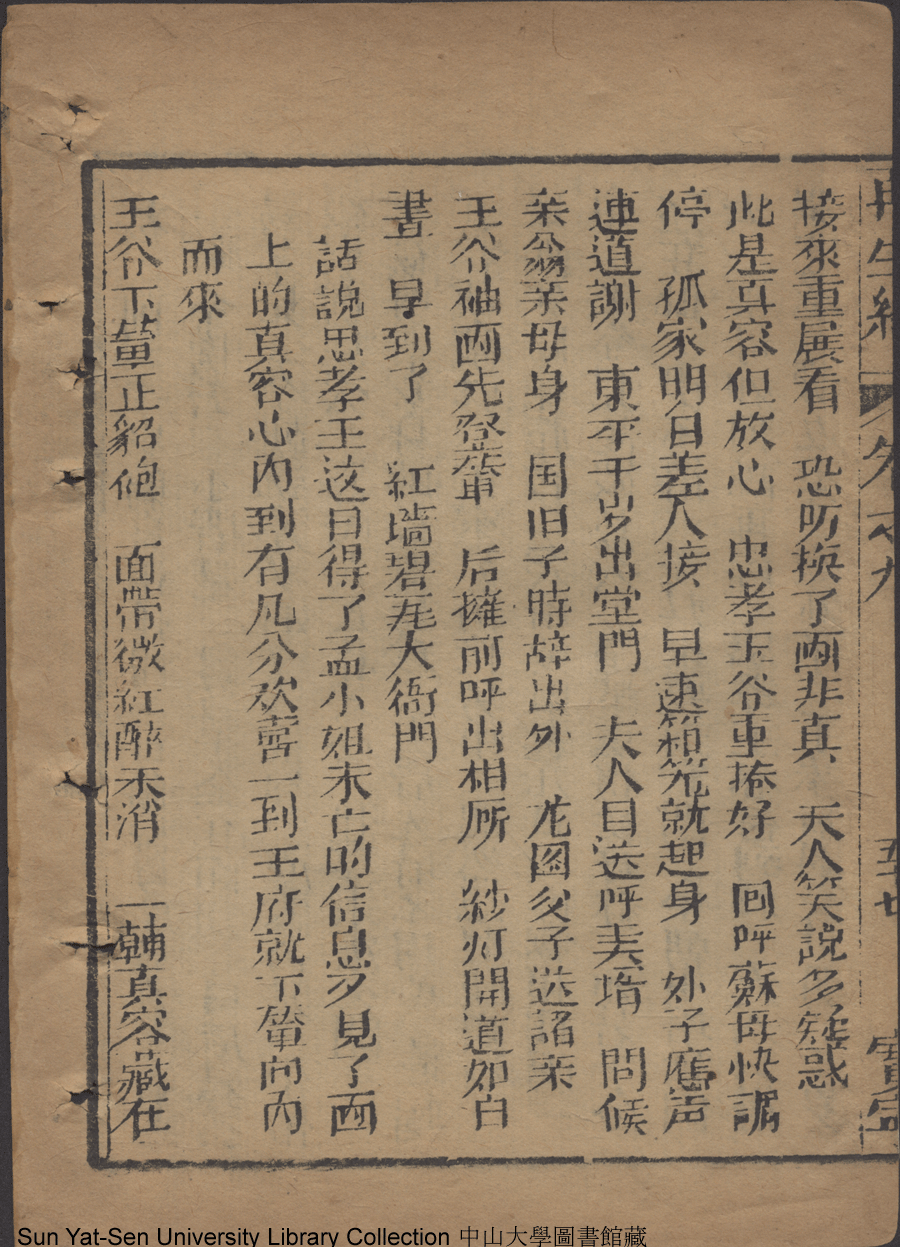 再生緣 卷之九 五十七 寶寧
接來重展看 恐防换了画非真 夫人笑説多疑惑
此是真容但放心 忠孝王爷重捲好 回呼蘇母快
停 孤家明日差人接 早速箱笼就起身 外子應声
連道謝 東平千岁出堂門 夫人目送呼夫壻 問候
亲翁亲母身 国旧子時辞出外 龙图父子送諸亲
王爷袖画先登輦 后擁前呼出相府 紗灯開道如白
晝 早到了 紅墻碧瓦大衙門
話說忠孝王这日得了孟小姐未亡的信息又見了画
上的真容心内到有几分欢喜一到王府就下輦向内
而來
王爷下輦正貂袍 面帶微紅醉未消 一輔真容藏在
Sun Yat-Sen University Library Collection 中山大學圖書館藏